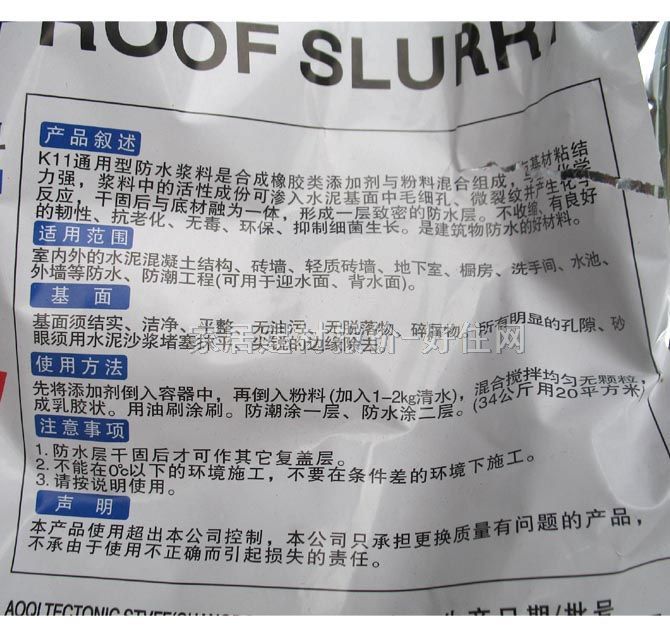 ROOF SLURR
产品叙述
K11通用型防水浆料是合成橡胶类添加剂与粉料混合组成，基材粘结
力强，浆料中的活性成份可渗入水泥基面中毛细孔、微裂纹并产生化学
反应，干固后与底材融为一体，形成一层致密的防水层。不收缩、有良好
的韧性、抗老化、无毒、环保、抑制细菌生长。是建筑物防水的好材料。
适用范围
室内外的水泥混凝土结构、砖墙、轻质砖墙、地下室、橱房、洗手间、水池、
外墙等防水、防潮工程(可用于迎水面、背水面)。
基面
基面须结实、洁净、平整、无油污、无脱落物、碎屑物，所有明显的孔隙、砂
眼须用水泥沙浆堵塞抹平，尖锐的边缘除去。
使用方法
先将添加剂倒入容器中，再倒入粉料(加入1-2kg清水)，混合搅拌均匀无颗粒，
成乳胶状。用油刷涂刷。防潮涂一层、防水涂二层。(34公斤用20平方米)
注意事项
1. 防水层干固后才可作其它复盖层。
2. 不能在0℃以下的环境施工，不要在条件差的环境下施工。
3. 请按说明使用。
声明
本产品使用超出本公司控制，本公司只承担更换质量有问题的产品，
不承由于使用不正确而引起损失的责任。
生产日期/批号